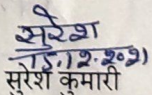 सुरेश
15.12.2021
सुरेश कुमारी